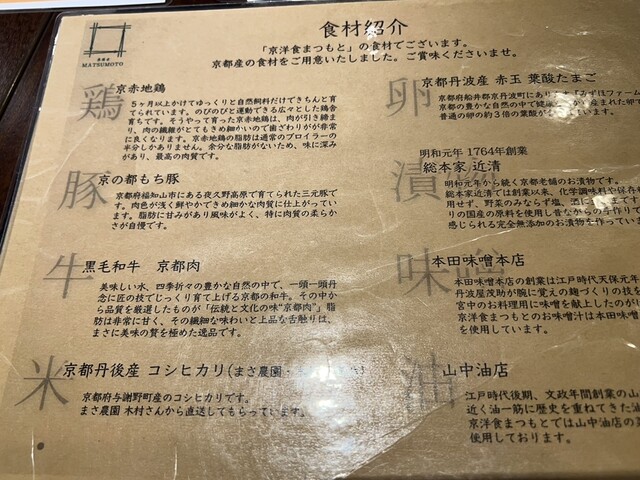 MATSUMOTO
食材紹介
「京洋食まつもと」の食材でございます。
京都産の食材をご用意いたしました。ご賞味くださいませ。
鶏
京赤地鶏
5ヶ月以上かけてゆっくりと自然飼料だけできちんと育
てられています。のびのびと運動できる広々とした鶏舎
育ちです。そうやって育った京赤地鶏は、肉が引き締ま
り、肉の繊維がとてもきめ細かいので歯ざわりがが非常
に良くなります。京赤地鶏の脂肪は通常のブロイラーの
半分しかありません。余分な脂肪がないため、味に深み
があり、最高の肉質です。
豚
京の都もち豚
京都府福知山市にある夜久野高原で育てられた三元豚で
す。肉色が浅く鮮やかできめ細かな肉質に仕上がってい
ます。脂肪に甘みがあり風味がよく、特に肉質の柔らか
さが自慢です。
牛
黒毛和牛 京都肉
美味しい水、四季折々の豊かな自然の中で、一頭一頭丹
念に匠の技でじっくり育て上げる京都の和牛。その中か
ら品質を厳選したものが「伝統と文化の味"京都肉"」脂
肪は非常に甘く、その繊細な味わいと上品な舌触りは、
まさに美味の贅を極めた逸品です。
米
京都丹後産 コシヒカリ(まさ農園・
京都府与謝野町産のコシヒカリです。
まさ農園 木村さんから直送してもらっています。
卵
京都丹波産 赤玉 葉酸たまご
京都府船井郡京丹波町にあります「みずほファーム
京都の豊かな自然の中で健康
産まれた卵
普通の卵の約3倍の葉酸が
漬
明和元年 1764年創業
総本家 近清
明和元年から続く京都老舗のお漬物です。
総本家近清では創業以来、化学調味料や保存
用せず、野菜のみならず塩、酒に
りの国産の原料を使用し昔ながらの手作りで
感じられる完全無添加のお漬物を作ってい
味噌
本田味噌本店
本田味噌本店の創業は江戸時代天保元年
丹波屋茂助が腕に覚えの麹づくりの技を
宮中のお料理用に味噌を献上したのが
京洋食まつもとのお味噌汁は本田味噌
を使用しています。
油
山中油店
江戸時代後期、文政年間創業の山
近く油一筋に歴史を重ねてきた油
京洋食まつもとでは山中油店の
使用しております。